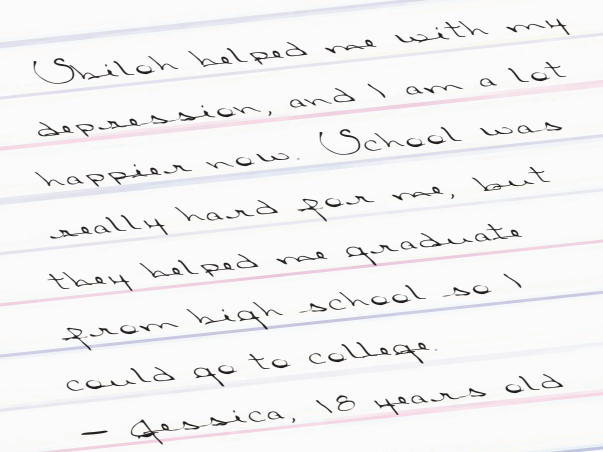 Shiloh helped me with my
depression, and I am a lot
happier now. School was
really hard for me, but
they helped me graduate
from high school so I
could go to college.
— Jessica, 18 years old